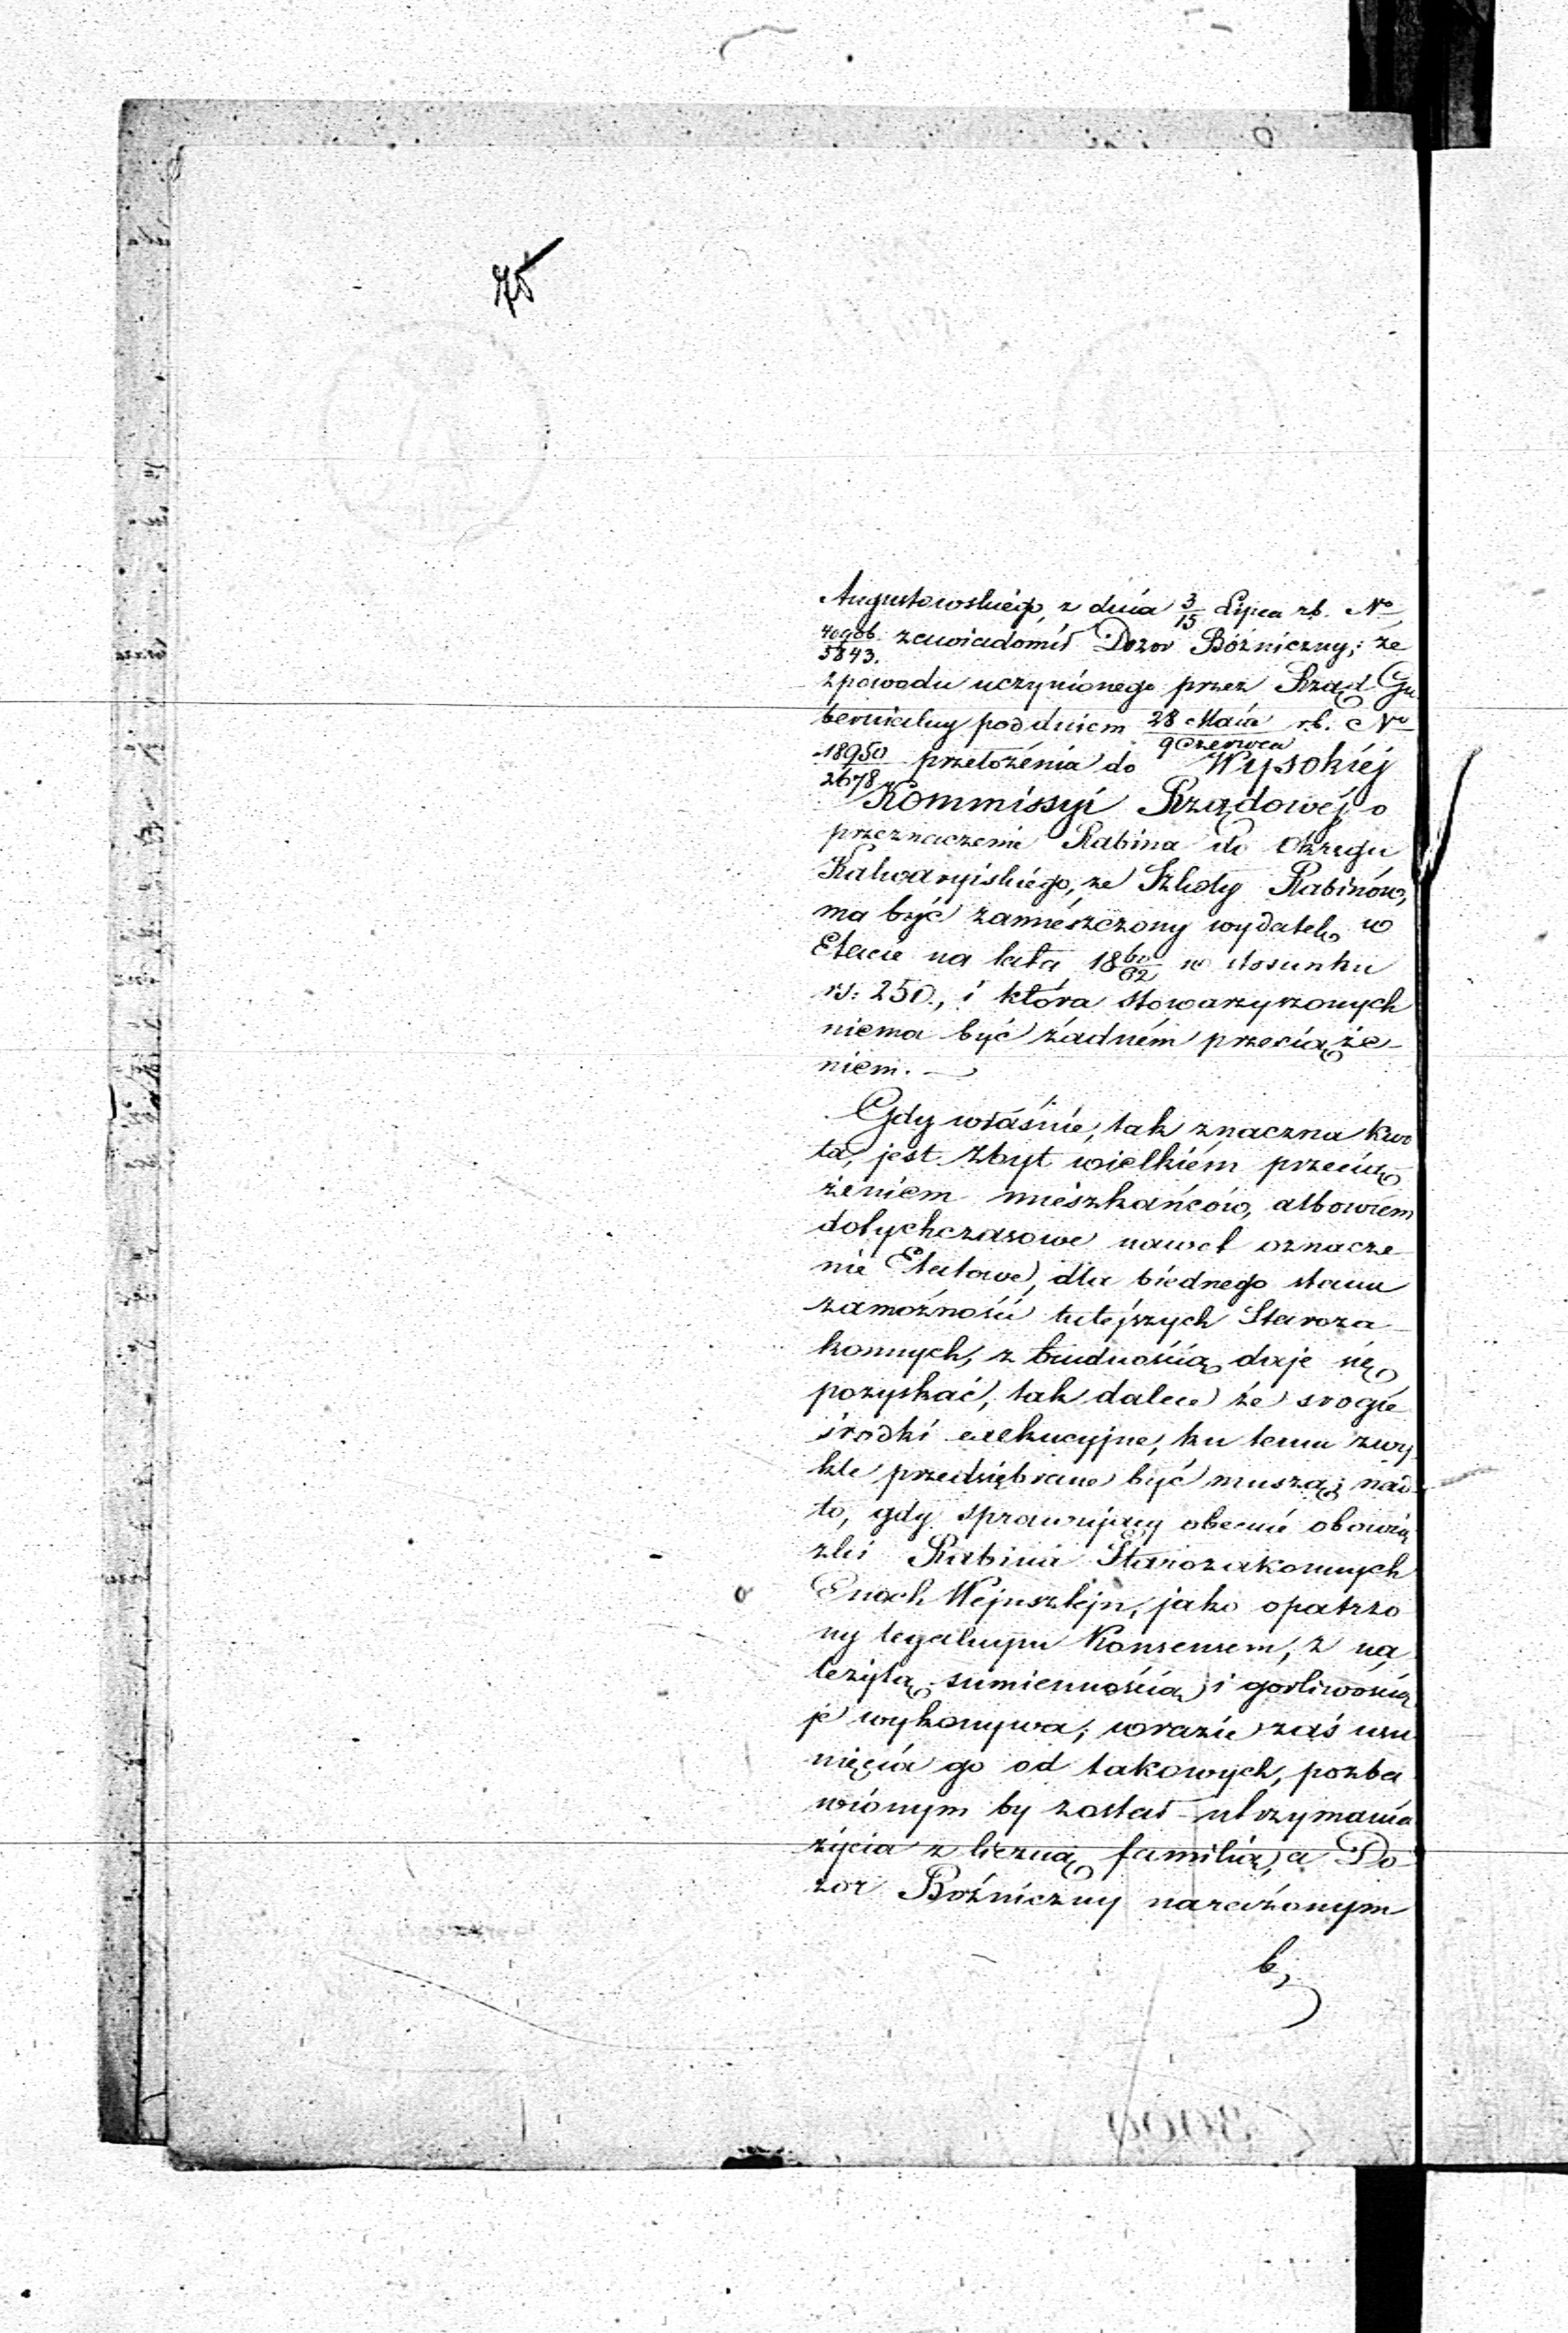 75
Augustowskiego, z dnia 3/15 Lipca rb. No
40906/5843. zawiadomił Dozor Bóżniczny; że
z powodu uczynionego przez Rząd Gu
bernialny pod dniem 28 Maia/9 Czerwca rb. No
18950/2678 przełożenia do Wysokiéj
Kommissyi Rządowéj o
przeznaczenie Rabina do Okręgu
Kalwaryiskiego, ze Szkoły Rabinów,
ma być zamieszczony wydatek w
Etacie na lata 1860/62 w stosunku
rs: 250., i która stowarzyszonych
niema być żadném przeciąże-
niem. —
Gdy właśnie, tak znaczna kwo
ta, jest zbyt wielkiém przecią
żeniem mieszkańców, albowiem
dotychczasowe nawet oznacze
nie Etatowe, dla biednego stanu
zamożności tutejszych Staroza
konnych, z trudnością daje się
pozyskać, tak dalece że srogie
środki exekucyjne, ku temu zwy
kle przedsiębrane być muszą; nad
to, gdy sprawujący obecnie obowią
zki Rabina Starozakonnych
Enoch Wejnsztejn, jako opatrzo
ny legalnym Konsensem, z na
leżytą sumiennością i gorliwością
je wykonywa; w razie zaś usu
nięcia go od takowych, pozba
wionym by został utrzymania
życia z liczną familią, a Do
zor Bóżniczny narażonym
b